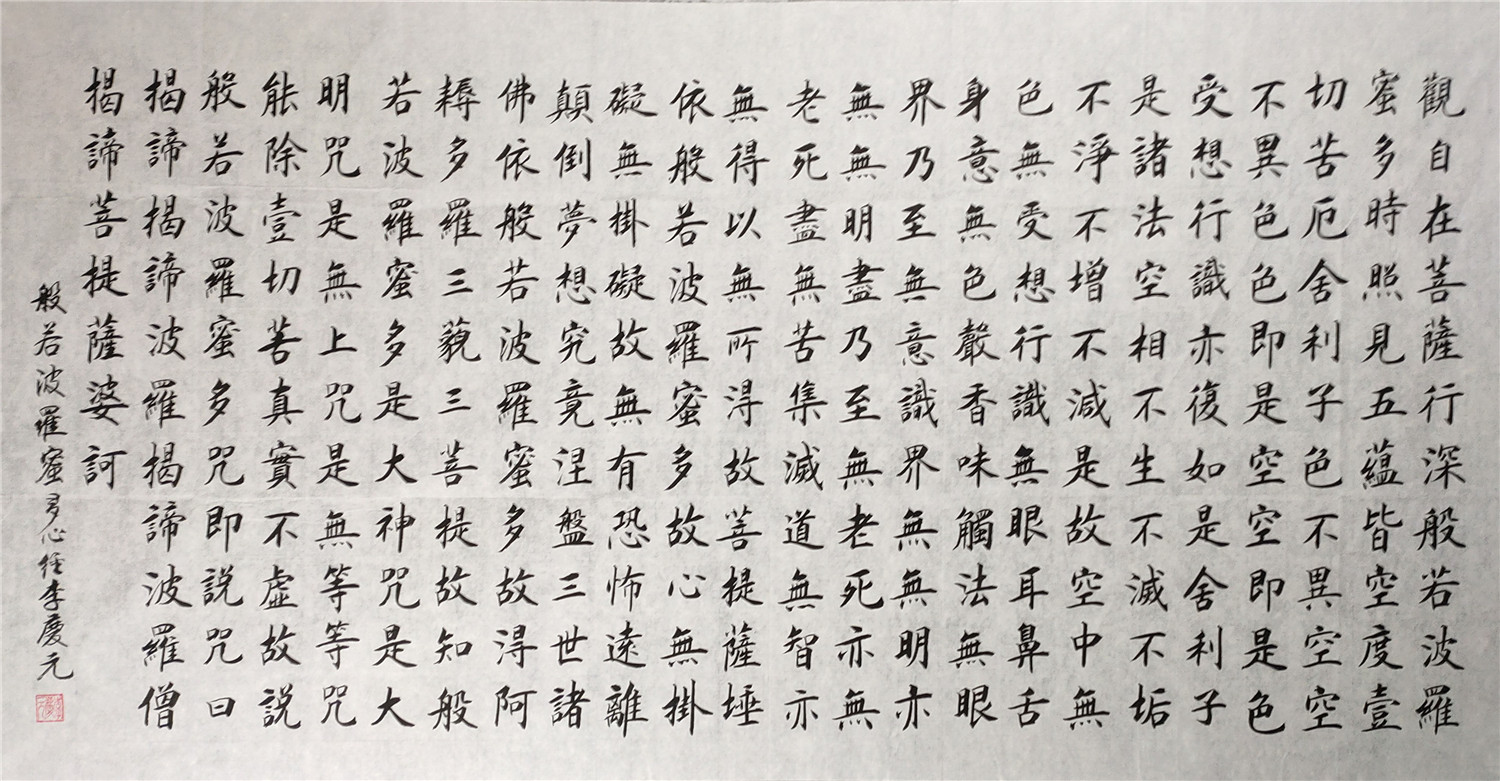 觀自在菩薩行深般若波羅
蜜多時照見五蘊皆空度壹
切苦厄舍利子色不異空空
不異色色即是空空即是色
受想行識亦復如是舍利子
是諸法空相不生不滅不垢
不淨不增不減是故空中無
色無受想行識無眼耳鼻舌
身意無色聲香味觸法無眼
界乃至無意識界無無明亦
無無明盡乃至無老死亦無
老死盡無苦集滅道無智亦
無得以無所得故菩提薩埵
依般若波羅蜜多故心無掛
礙無掛礙故無有恐怖遠離
顛倒夢想究竟涅盤三世諸
佛依般若波羅蜜多故得阿
耨多羅三藐三菩提故知般
若波羅蜜多是大神咒是大
明咒是無上咒是無等等咒
能除壹切苦真實不虛故説
般若波羅蜜多咒即説咒曰
揭諦揭諦波羅揭諦波羅僧
揭諦菩提薩婆訶
般若波羅蜜多心經李慶元